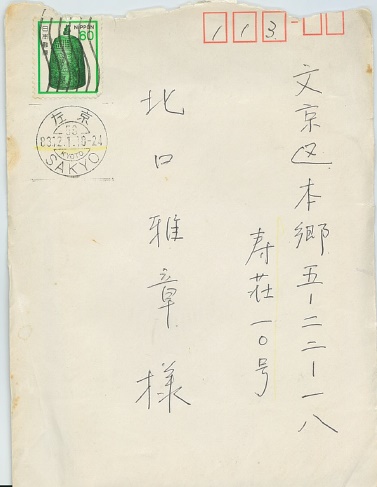 113
文京区本郷五-二二-一八
寿荘一〇号
北口雅章様
日本郵便
NIPPON
60
左京
58
83.12.1.18-24
KYOTO
SAKYO